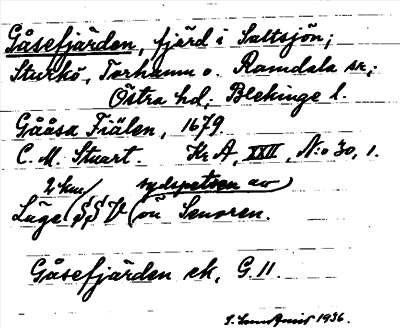 Gåsefjärden, fjärd i Saltsjön;
Sturkö, Torhamn o. Ramdala sn;
Östra hd; Blekinge l.
Gååsa Fiälen, 1679.
C. M. Stuart. Kr A, XXII, N:o 30, 1.
2 km sydspetsen av
Läge SSV ön Senoren.
Gåsefjärden ek, G 11.
1936.